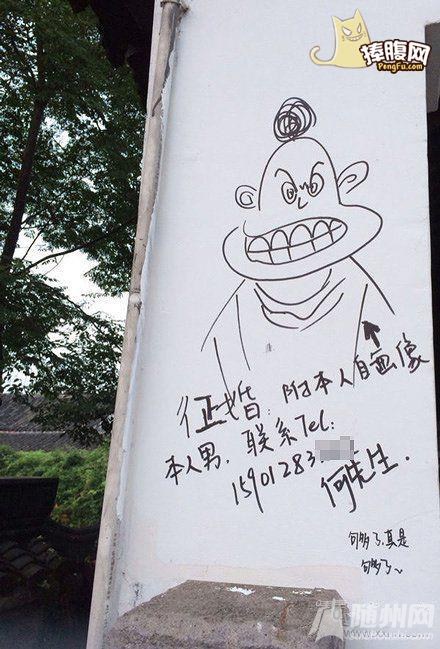 捧腹网
PengFu.com
征婚:附本人自画像
本人男，联系Tel:
15901283
何先生.
够了,真是
够了~
随州网